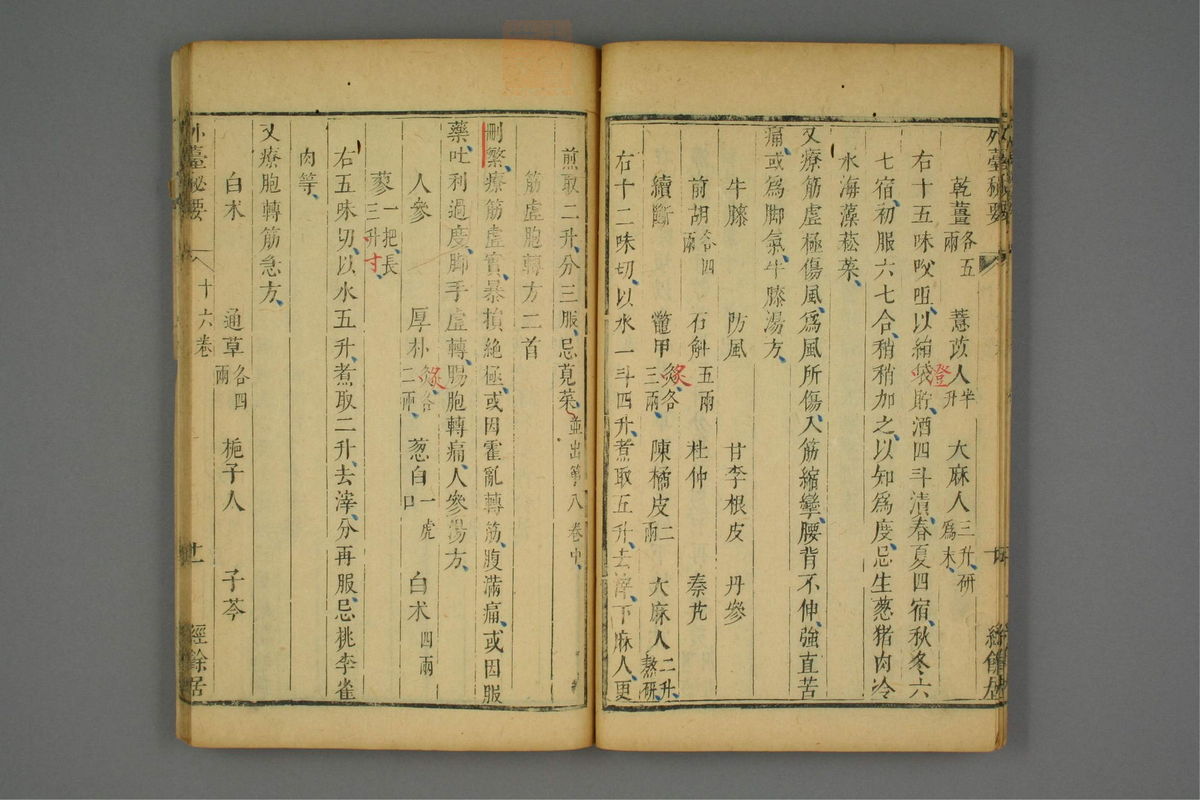 外臺祕要
乾薑各五兩 薏苡人半升 大麻人三升研爲末
右十五味㕮咀以絹袋貯酒四斗漬春夏四宿秋冬六
七宿初服六七合稍稍加之以知爲度忌生葱猪肉冷
水海藻菘菜
又療筋虛極傷風爲風所傷入筋縮攣腰背不伸強直苦
痛或爲脚氣牛膝湯方
牛膝 防風 甘李根皮 丹參
前胡各四兩 石斛五兩 杜仲 秦艽
續斷 鼈甲炙各三兩 陳橘皮二兩 大麻人二升熬研
右十二味切以水一斗四升煮取五升去滓下麻人更
煎取二升分三服忌莧菜並出第八卷中
筋虛胞轉方二首
刪繁療筋虛實暴損絶極或因霍亂轉筋腹滿痛或因服
藥吐利過度脚手虛轉腸胞轉痛人參湯方
人參 厚朴炙各二兩 葱白一虎口 白术四兩
蓼一把長三寸
右五味切以水五升煮取二升去滓分再服忌桃李雀
肉等
又療胞轉筋急方
白术 通草各四兩 梔子人 子芩
外臺祕要 十六卷 十一 經餘居
經餘居